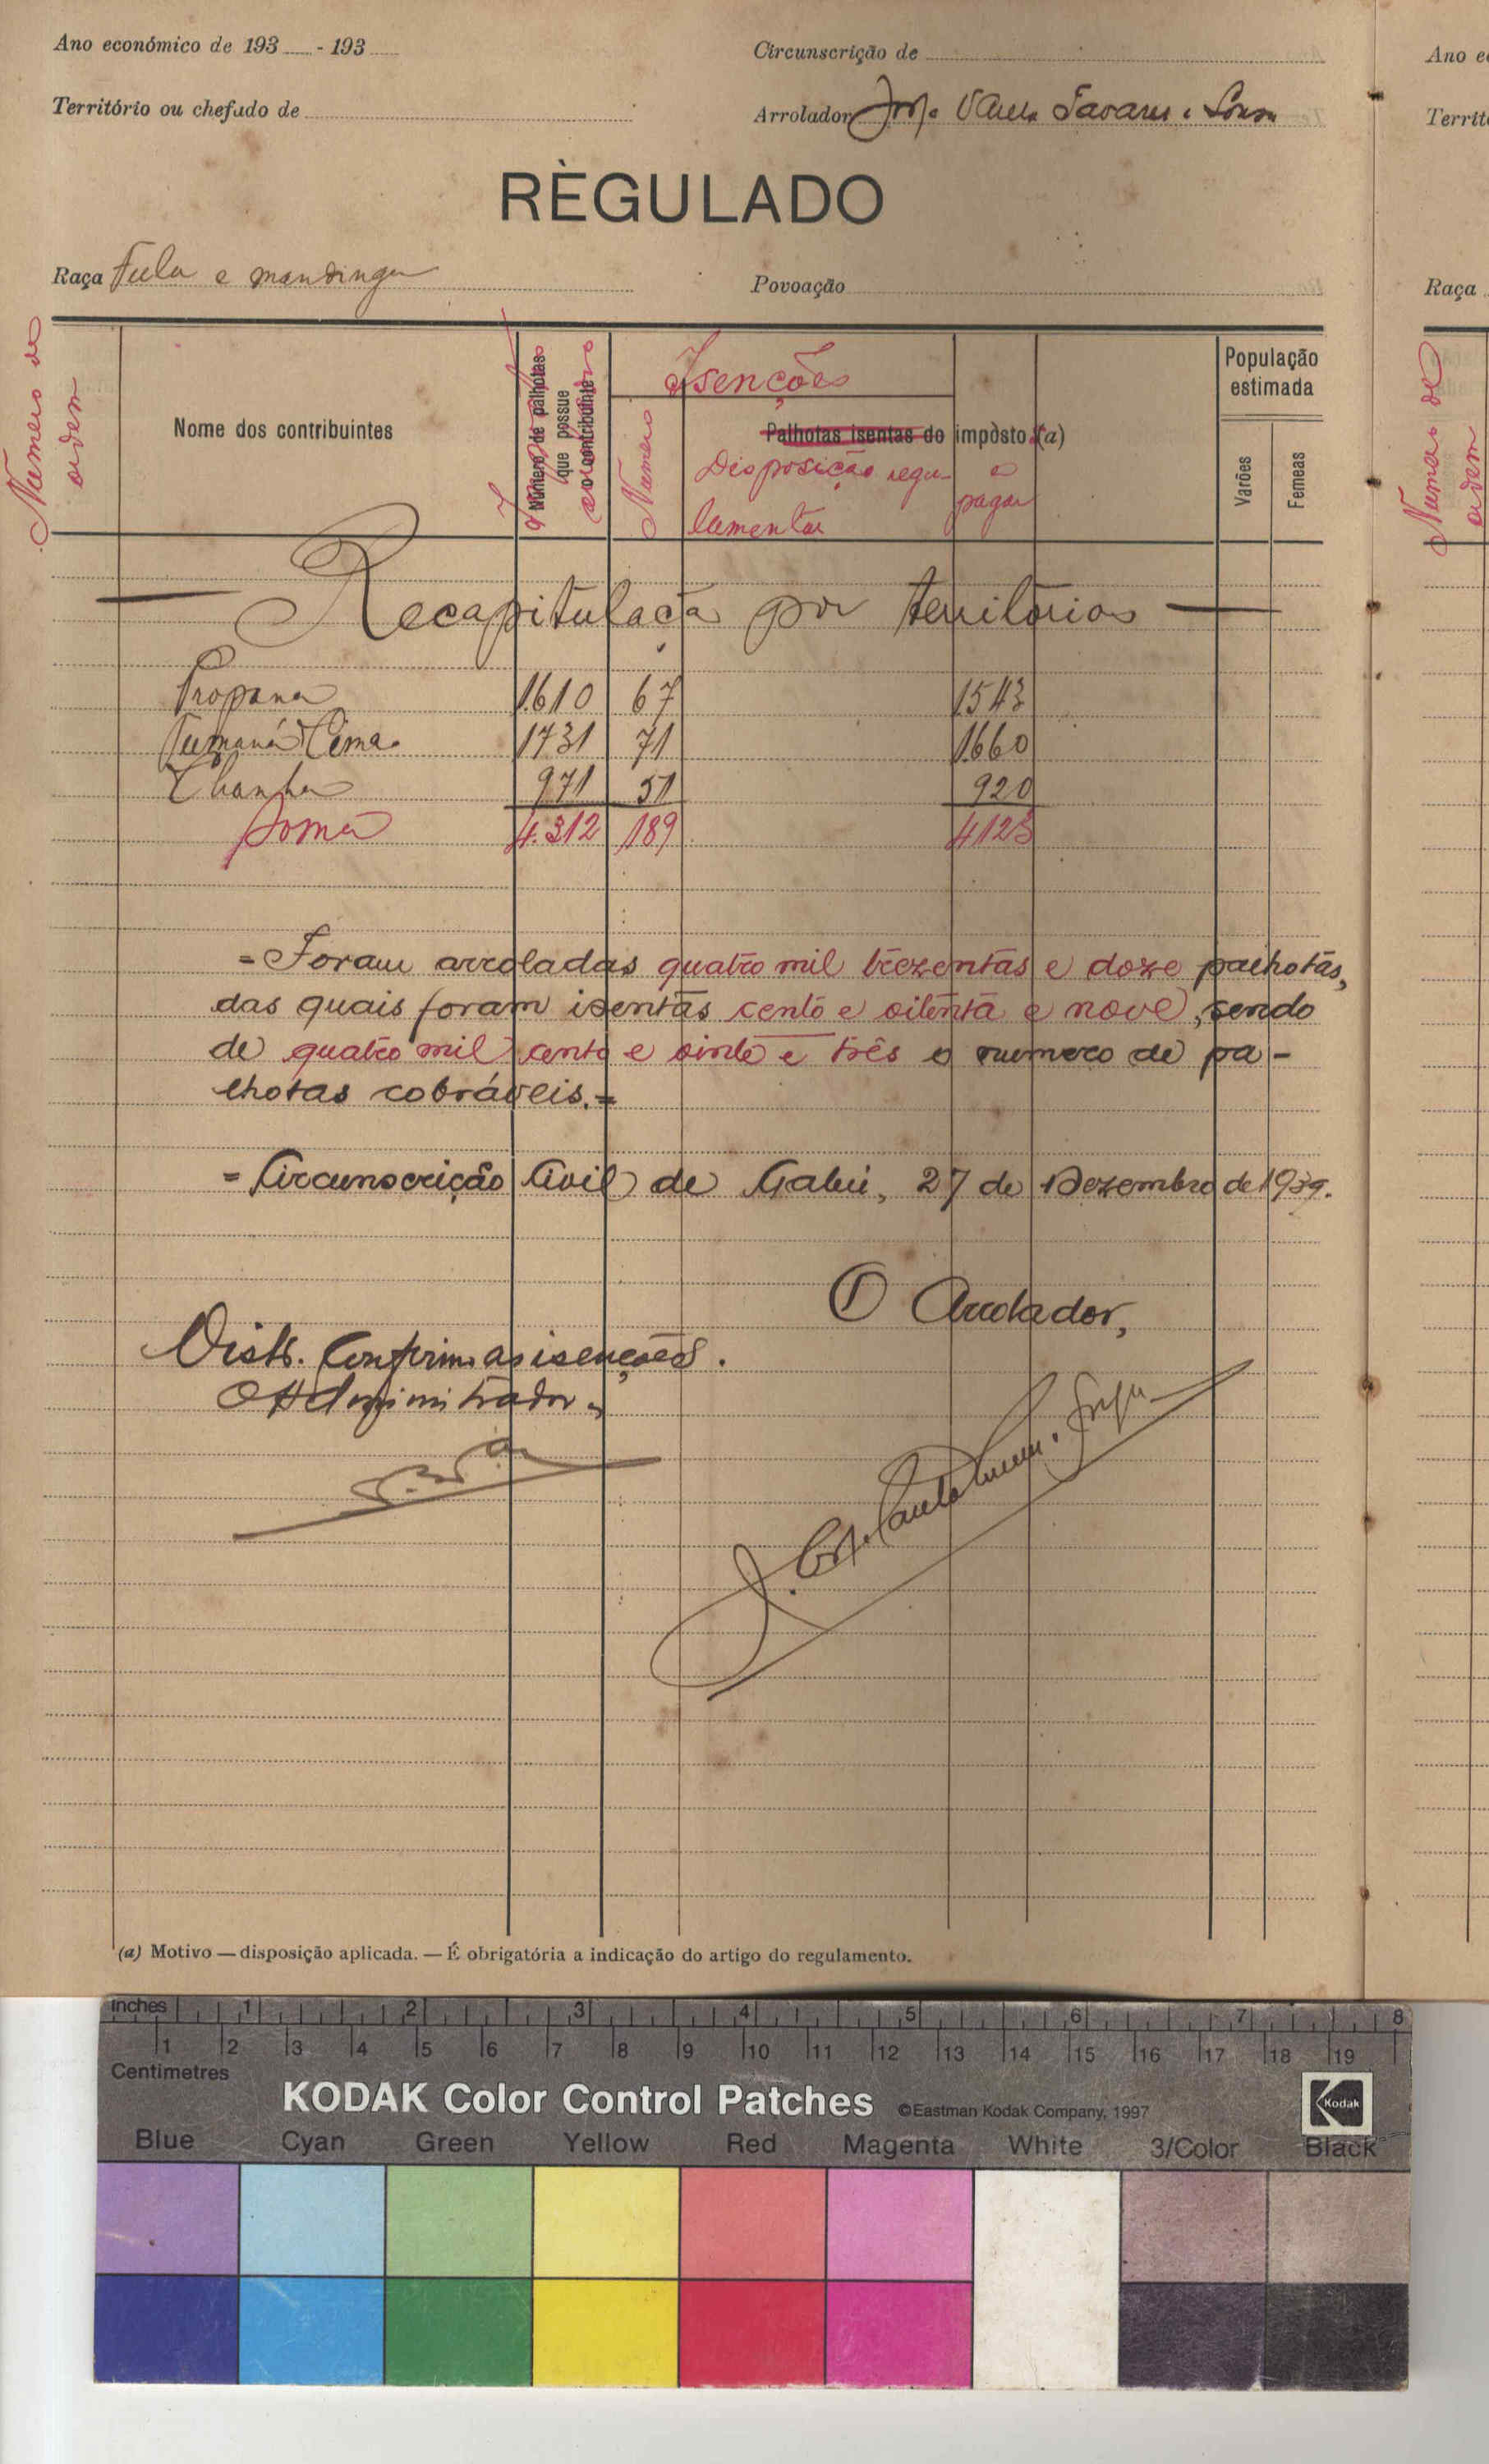 Ano económico de 193 - 193
Circunscrição de
Território ou chefado de
Arrolador José Tavares e Sousa
RÈGULADO
Raça Fula e mandinga
Povoação
Numero de ordem
Nome dos contribuintes
Número de palhotas que possue o contribuinte
Isenções
Palhotas isentas do impôsto (a)
Numero
Disposição regu-
lamentar
a pagar
População estimada
Varões
Femeas
Recapitulação por territórios
Propana 1.610 67 1543
Tumaná Cima 1731 71 1660
Chanha 971 51 920
Soma 4.312 189 4123
= Foram arroladas quatro mil trezentas e doze palhotas,
das quais foram isentas cento e oitenta e nove, sendo
de quatro mil cento e vinte e três o numero de pa-
lhotas cobráveis. =
= Circunscrição Civil de Gabú, 27 de Dezembro de 1939.
O Arrolador,
Visto. Confirmo as isenções.
O Administrador,
(a) Motivo — disposição aplicada. — É obrigatória a indicação do artigo do regulamento.
Ano e
Territ
Raça
Numero de ordem
inches 1 2 3 4 5 6 7 8
1 2 3 4 5 6 7 8 9 10 11 12 13 14 15 16 17 18 19
Centimetres
KODAK Color Control Patches ©Eastman Kodak Company, 1997 Kodak
Blue Cyan Green Yellow Red Magenta White 3/Color Black